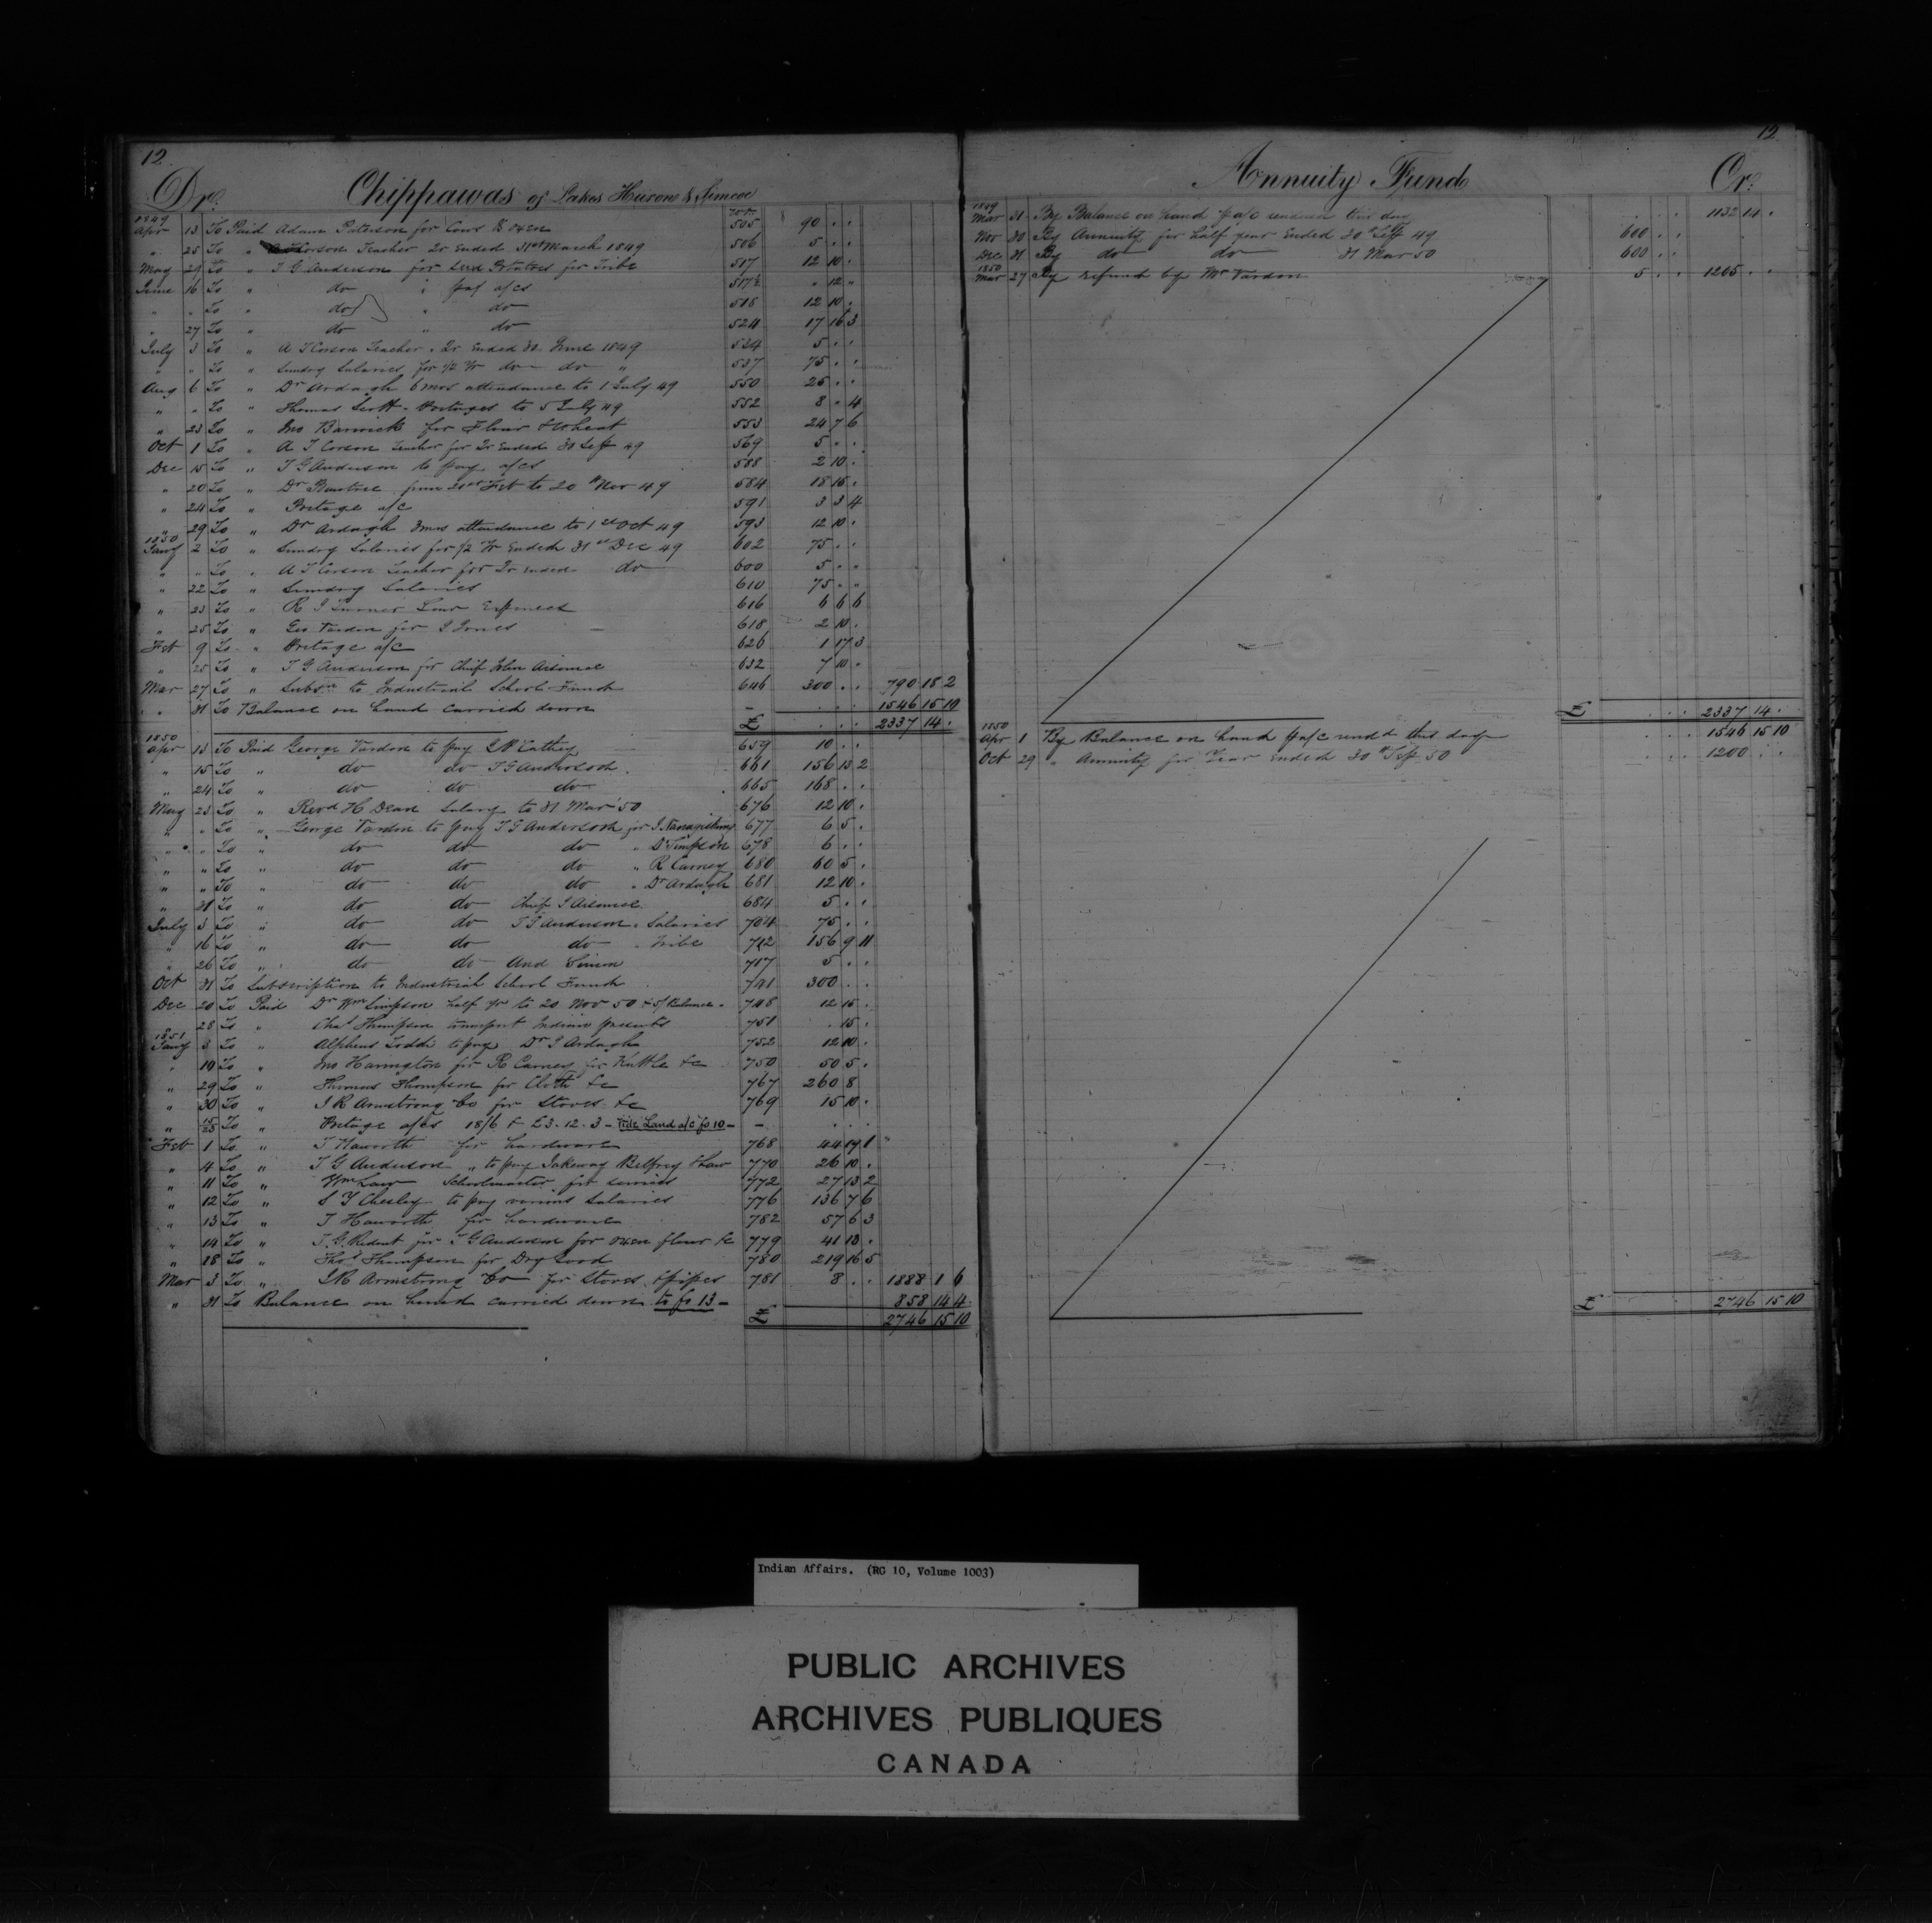 12
Dr. Chippawas of Lakes Huron & Simcoe
1849 No
Apr 13 To Paid Adam Paterson for Cows & Oxen 505 90 . .
" 25 To " A T Corson Teacher Qr Ended 31st March 1849 506 5 . .
May 29 To " T G Anderson for Seed Potatoes for Tribe 517 12 10 .
June 16 To " do " pay a/cs 517½ " 12 "
" " To " do " do 518 12 10 .
" 27 To " do " do 524 17 16 3
July 3 To " A T Corson Teacher " Qr Ended 30 June 1849 534 5 . .
" " To " Sundry Salaries for 1/2 Yr do do " 537 75 . .
Aug 6 To " Dr Ardagh 6 mos attendance to 1 July 49 550 25 . .
" " To " Thomas Scott - Postages to 5 July 49 552 8 " 4
" 23 To " Jno Barwick for Flour & Wheat 553 24 7 6
Oct 1 To " A T Corson Teacher for Qr Ended 30 Sept 49 569 5 " .
Dec 15 To " T G Anderson to pay a/cs 588 2 10 .
" 20 To " Dr from 20st Feb to 20th Nov 49 584 18 15 .
" 24 To " Postage a/c 591 3 3 4
" 29 To " Dr Ardagh 3 mos attendance to 1st Oct 49 593 12 10 .
1850
Jany 2 To " Sundry Salaries for 1/2 Yr Ended 31st Dec 49 602 75 . .
" " To " A T Corson Teacher for Qr ended do 600 5 " "
" 22 To " Sundry Salaries 610 75 " "
" 23 To " R J Turner Law Expenses 616 6 6 6
" 25 To " Geo Vardon for J Jones 618 2 10 .
Feb 9 To " Postage a/c 626 1 17 3
" 25 To " T G Anderson for Chief John Aisance 632 7 10 "
Mar 27 To " Subsn to Industrial School Fund 646 300 . . 790 18 2
" 31 To Balance on hand carried down - . . . 1546 15 10
£ . . . 2337 14 .
1850
Apr 13 To Paid George Vardon to pay 659 10 . .
" 15 To " do do T G Anderson 661 156 13 2
" 24 To " do do do 665 168 . .
May 23 To " Revd H Dean Salary to 31 Mar 50 676 12 10 .
" " To " George Vardon to pay T G Anderson for J 677 6 5 .
" " To " do do do " Dr Simpson 678 6 . .
" " To " do do do " R Carney 680 60 5 .
" " To " do do do " Dr Ardagh 681 12 10 .
" 31 To " do do Chief J Aisance 684 5 . .
July 3 To " do do T G Anderson " Salaries 704 75 . .
" 16 To " do do do " Tribe 712 156 9 11
" 26 To " do do And Simon 717 5 . .
Oct 31 To Subscription to Industrial School Fund 741 300 . .
Dec 20 To Paid Dr Wm Simpson half yr to 20 Nov 50 & 5/ Balance 748 12 15 .
" 28 To " Chas Thompson transport Indian presents 751 . 15 .
1851
Jany 3 To " Alpheus Todd to pay Dr J Ardagh 752 12 10 .
" 10 To " Jno Harrington for R Carney for Kettle &c 750 50 5 .
" 29 To " Thomas Thompson for Cloth &c 767 260 8
" 30 To " J R Armstrong & Co for Stoves &c 769 15 10 .
" 15/25 To " Postage a/cs 18/6 & £3.12.3 - Vide Land a/c fo 10 - -
Feb 1 To " T Haworth for hardware 768 44 19 1
" 4 To " T G Anderson " to pay Jakeway Belfrey & Law 770 26 10 .
" 11 To " Wm Law Schoolmaster for services 772 27 13 2
" 12 To " S Y Chesley to pay various Salaries 776 136 7 6
" 13 To " T Haworth for hardware 782 57 6 3
" 14 To " T G Ridout for T G Anderson for Oxen flour &c 779 41 13 .
" 18 To " Thos Thompson for Dry Good 780 219 16 5
Mar 3 To " J R Armstrong & Co for Stoves & pipes 781 8 . . 1888 1 6
" 31 To Balance on hand carried down to fo 13 - 858 14 4
£ 2746 15 10
12
Annuity Fund Cr.
1849
Mar 31 By Balance on hand p a/c this day 1132 14 .
Nov 30 By Annuity for half year Ended 30th Sept 49 600 . .
Dec 31 By do do 31 Mar 50 600 . .
1850
Mar 27 By refund by Mr Vardon 5 . . 1205 . .
£ . . . 2337 14 .
1850
Apr 1 By Balance on hand p a/c this day . . . 1546 15 10
Oct 29 " Annuity for Year Ended 30th Sep 50 . . . 1200 . .
£ 2746 15 10
Indian Affairs. (RG 10, Volume 1003)
PUBLIC ARCHIVES
ARCHIVES PUBLIQUES
CANADA